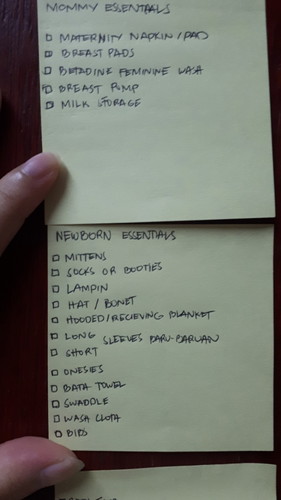 MOMMY ESSENTIALS
MATERNITY NAPKIN/PAD
BREAST PADS
BETADINE FEMININE WASH
BREAST PUMP
MILK STORAGE
NEWBORN ESSENTIALS
MITTENS
SOCKS OR BOOTIES
LAMPIN
HAT / BONET
HOODED/RECIEVING BLANKET
LONG SLEEVES BARU-BARUAN
SHORT
ONESIES
BATH TOWEL
SWADDLE
WASH CLOTH
BIBS